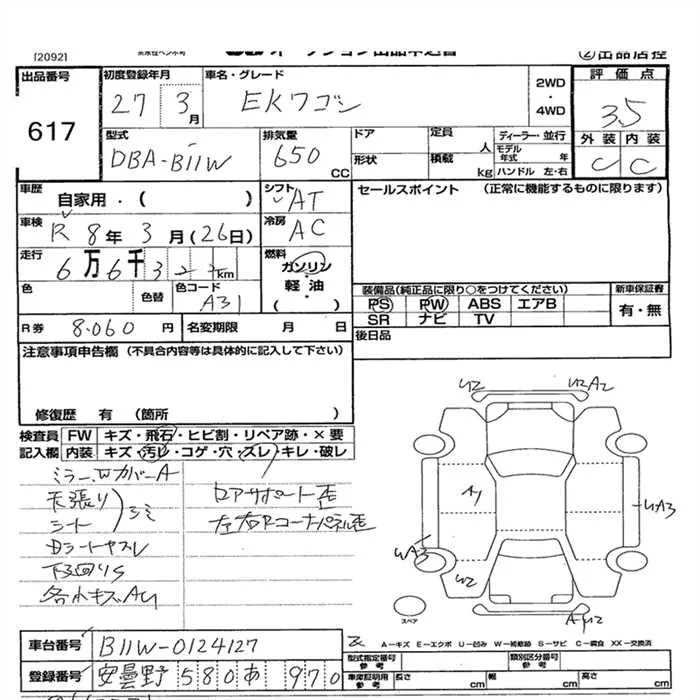 [2092]
②出品店控
出品番号 初度登録年月 車名・グレード 2WD・4WD 評価点
617 27 3月 EKワゴン 3.5
型式 排気量 ドア 定員 人 ディーラー・並行 外装 内装
DBA-B11W 650 CC 形状 積載 kg モデル年式 年 ハンドル 左・右 C C
車歴 自家用・( ) シフト AT セールスポイント (正常に機能するものに限ります)
車検 R 8年 3月 (26日) 冷房 AC
走行 6万6千3 km 燃料 ガソリン・軽油・( )
色 色替 色コード A31
装備品(純正品に限り○をつけてください) 新車保証書
PS PW ABS エアB 有・無
SR ナビ TV
R券 8.060円 名変期限 月 日 後日品
注意事項申告欄 (不具合内容等は具体的に記入して下さい)
修復歴 有 (箇所 )
検査員記入欄 FW キズ・飛石・ヒビ割・リペア跡・×要
内装 キズ・汚レ・コゲ・穴・ズレ・キレ・破レ
ミラー、Wカバー A
天張り
シート
シミ
下回りS
各小キズAU
リアサポート歪
左右Rコーナーパネル歪
U2 U2A2
A1
UA3
UA3
U2
スペア
A-キズ E-エクボ U-凹み W-補修跡 S-サビ C-腐食 XX-交換済
車台番号 B11W-0124127
型式指定番号 参考 類別区分番号 参考
登録番号 安曇野 580 あ 970
車庫証明用 参考 長さ cm 幅 cm 高さ cm